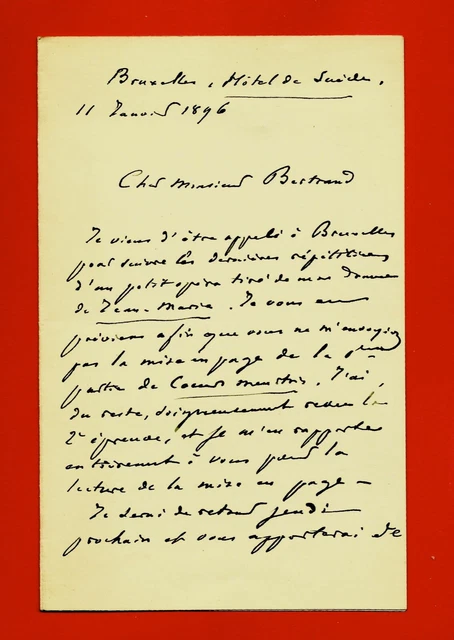 Bruxelles, Hôtel de Suède,
11 Janvier 1896
Cher Monsieur Bertrand
Je viens d'être appelé à Bruxelles
pour suivre les dernières répétitions
d'un petit opéra tiré de mon drame
de Jean-Marie. Je vous en
préviens afin que vous ne m'envoyiez
pas la mise en page de la
partie de Coeurs meurtris. J'ai,
du reste, soigneusement revu la
2e épreuve, et je m'en rapporte
entièrement à vous pour la
lecture de la mise en page —
Je serai de retour jeudi
prochain et vous apporterai de